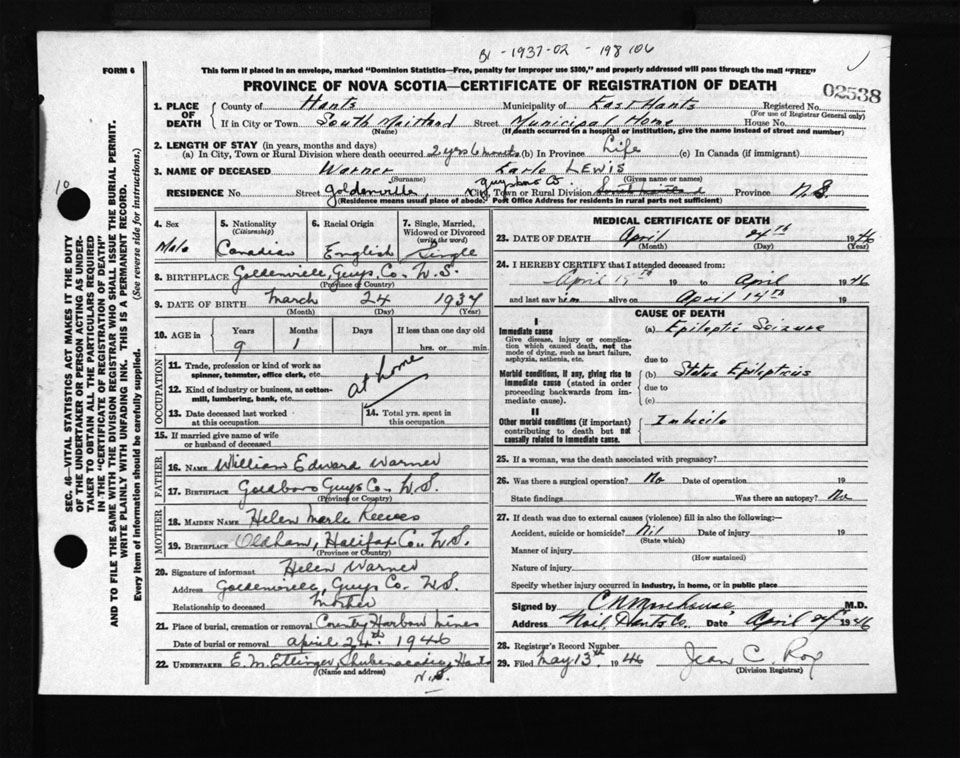 B - 1937-02 - 198106
FORM 6
This form if placed in an envelope, marked "Dominion Statistics—Free, penalty for improper use $300," and properly addressed will pass through the mail "FREE"
PROVINCE OF NOVA SCOTIA—CERTIFICATE OF REGISTRATION OF DEATH
02538
1. PLACE OF DEATH
County of Hants Municipality of East Hants Registered No.
(For use of Registrar General only)
If in City or Town South Maitland Street Municipal Home House No.
(Name) (If death occurred in a hospital or institution, give the name instead of street and number)
2. LENGTH OF STAY (in years, months and days)
(a) In City, Town or Rural Division where death occurred 2 yrs 6 months (b) In Province Life (c) In Canada (if immigrant)
3. NAME OF DECEASED Warner Earle LEWIS
(Surname) (Given names or names)
RESIDENCE No. Street Goldenville, Guysboro Co. City, Town or Rural Division South Maitland Province N.S.
(Residence means usual place of abode. Post Office Address for residents in rural parts not sufficient)
4. Sex 5. Nationality (Citizenship) 6. Racial Origin 7. Single, Married, Widowed or Divorced (write the word)
Male Canadian English Single
8. BIRTHPLACE Goldenville, Guys. Co. N.S.
(Province or Country)
9. DATE OF BIRTH March 24 1937
(Month) (Day) (Year)
10. AGE in Years Months Days If less than one day old
9 1 hrs. or min.
OCCUPATION
11. Trade, profession or kind of work as spinner, teamster, office clerk, etc.
12. Kind of industry or business, as cotton-mill, lumbering, bank, etc.
at home
13. Date deceased last worked at this occupation
14. Total yrs. spent in this occupation
15. If married give name of wife or husband of deceased
FATHER
16. NAME William Edward Warner
17. BIRTHPLACE Goldboro Guys Co. N.S.
(Province or Country)
MOTHER
18. MAIDEN NAME Helen Merle Reeves
19. BIRTHPLACE Oldham, Halifax Co. N.S.
(Province or Country)
20. Signature of informant Helen Warner
Address Goldenville, Guys Co. N.S.
Relationship to deceased Mother
21. Place of burial, cremation or removal Country Harbour Mines
Date of burial or removal April 24th 1946
22. UNDERTAKER E. M. Ettinger, Shubenacadie, Hants
(Name and address) N.S.
MEDICAL CERTIFICATE OF DEATH
23. DATE OF DEATH April 24th 1946
(Month) (Day) (Year)
24. I HEREBY CERTIFY that I attended deceased from:
April 19 to April 1946
and last saw him alive on April 14th 19
CAUSE OF DEATH
I
Immediate cause
Give disease, injury or complication which caused death, not the mode of dying, such as heart failure, asphyxia, asthenia, etc.
(a) Epileptic Seizure
due to
Morbid conditions, if any, giving rise to immediate cause (stated in order proceeding backwards from immediate cause).
(b) Status Epilepticus
due to
(c)
II
Other morbid conditions (if important) contributing to death but not causally related to immediate cause.
Imbecile
25. If a woman, was the death associated with pregnancy?
26. Was there a surgical operation? No Date of operation 19
State findings Was there an autopsy? No
27. If death was due to external causes (violence) fill in also the following:—
Accident, suicide or homicide? Nil Date of injury 19
(State which)
Manner of injury
(How sustained)
Nature of injury
Specify whether injury occurred in industry, in home, or in public place
Signed by C N Morehouse M.D.
Address Noel, Hants Co. Date April 1946
28. Registrar's Record Number
29. Filed May 13th 1946 Jean C. Roy
(Division Registrar)
10
SEC. 46—VITAL STATISTICS ACT MAKES IT THE DUTY
OF THE UNDERTAKER OR PERSON ACTING AS UNDERTAKER TO OBTAIN ALL THE PARTICULARS REQUIRED
IN THE "CERTIFICATE OF REGISTRATION OF DEATH"
AND TO FILE THE SAME WITH THE DIVISION REGISTRAR WHO SHALL ISSUE THE BURIAL PERMIT.
WRITE PLAINLY WITH UNFADING INK. THIS IS A PERMANENT RECORD.
Every item of information should be carefully supplied. (See reverse side for instructions.)